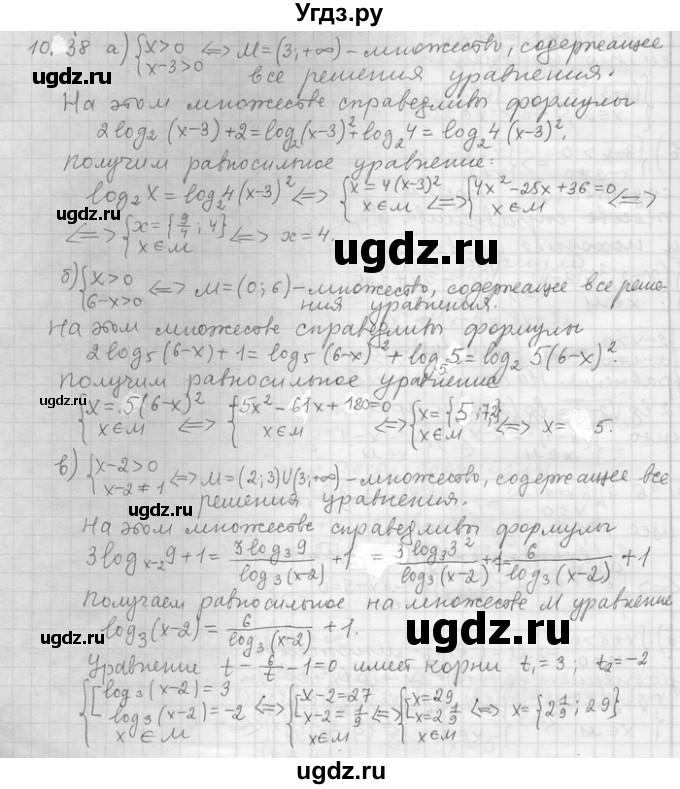 Угдз.ру
10.38 а) {x>0 x-3>0 ⟺ M=(3;+∞) – множество, содержащее
все решения уравнения.
На этом множестве справедливы формулы
2log₂(x-3)+2=log₂(x-3)²+log₂4=log₂4(x-3)².
Получим равносильное уравнение:
log₂x=log₂4(x-3)² ⟺ {x=4(x-3)² x∈M ⟺ {4x²-25x+36=0 x∈M ⟺
⟺ {x={9/4; 4} x∈M ⟺ x=4.
б) {x>0 6-x>0 ⟺ M=(0;6) – множество, содержащее все реше-
ния уравнения.
На этом множестве справедливы формулы
2log₅(6-x)+1=log₅(6-x)²+log₅5=log₂5(6-x)².
Получим равносильное уравнение
{x=5(6-x)² x∈M ⟺ {5x²-61x+180=0 x∈M ⟺ {x={5;7,2} x∈M ⟺ x=5.
в) {x-2>0 x-2≠1 ⟺ M=(2;3)∪(3;+∞) – множество, содержащее все
решения уравнения.
На этом множестве справедливы формулы
3log_{x-2}9+1=3log₃9/log₃(x-2)+1=3log₃3²/log₃(x-2)+1=6/log₃(x-2)+1
Получаем равносильное на множестве M уравнение
log₃(x-2)=6/log₃(x-2)+1.
Уравнение t-6/t-1=0 имеет корни t₁=3; t₂=-2
{[log₃(x-2)=3 log₃(x-2)=-2 x∈M ⟺ {[x-2=27 x-2=1/9 x∈M ⟺ {[x=29 x=2 1/9 x∈M ⟺ x={2 1/9; 29}
ugdz.ru
ugdz.ru
ugdz.ru
ugdz.ru
ugdz.ru
ugdz.ru
ugdz.ru
ugdz.ru
ugdz.ru
ugdz.ru